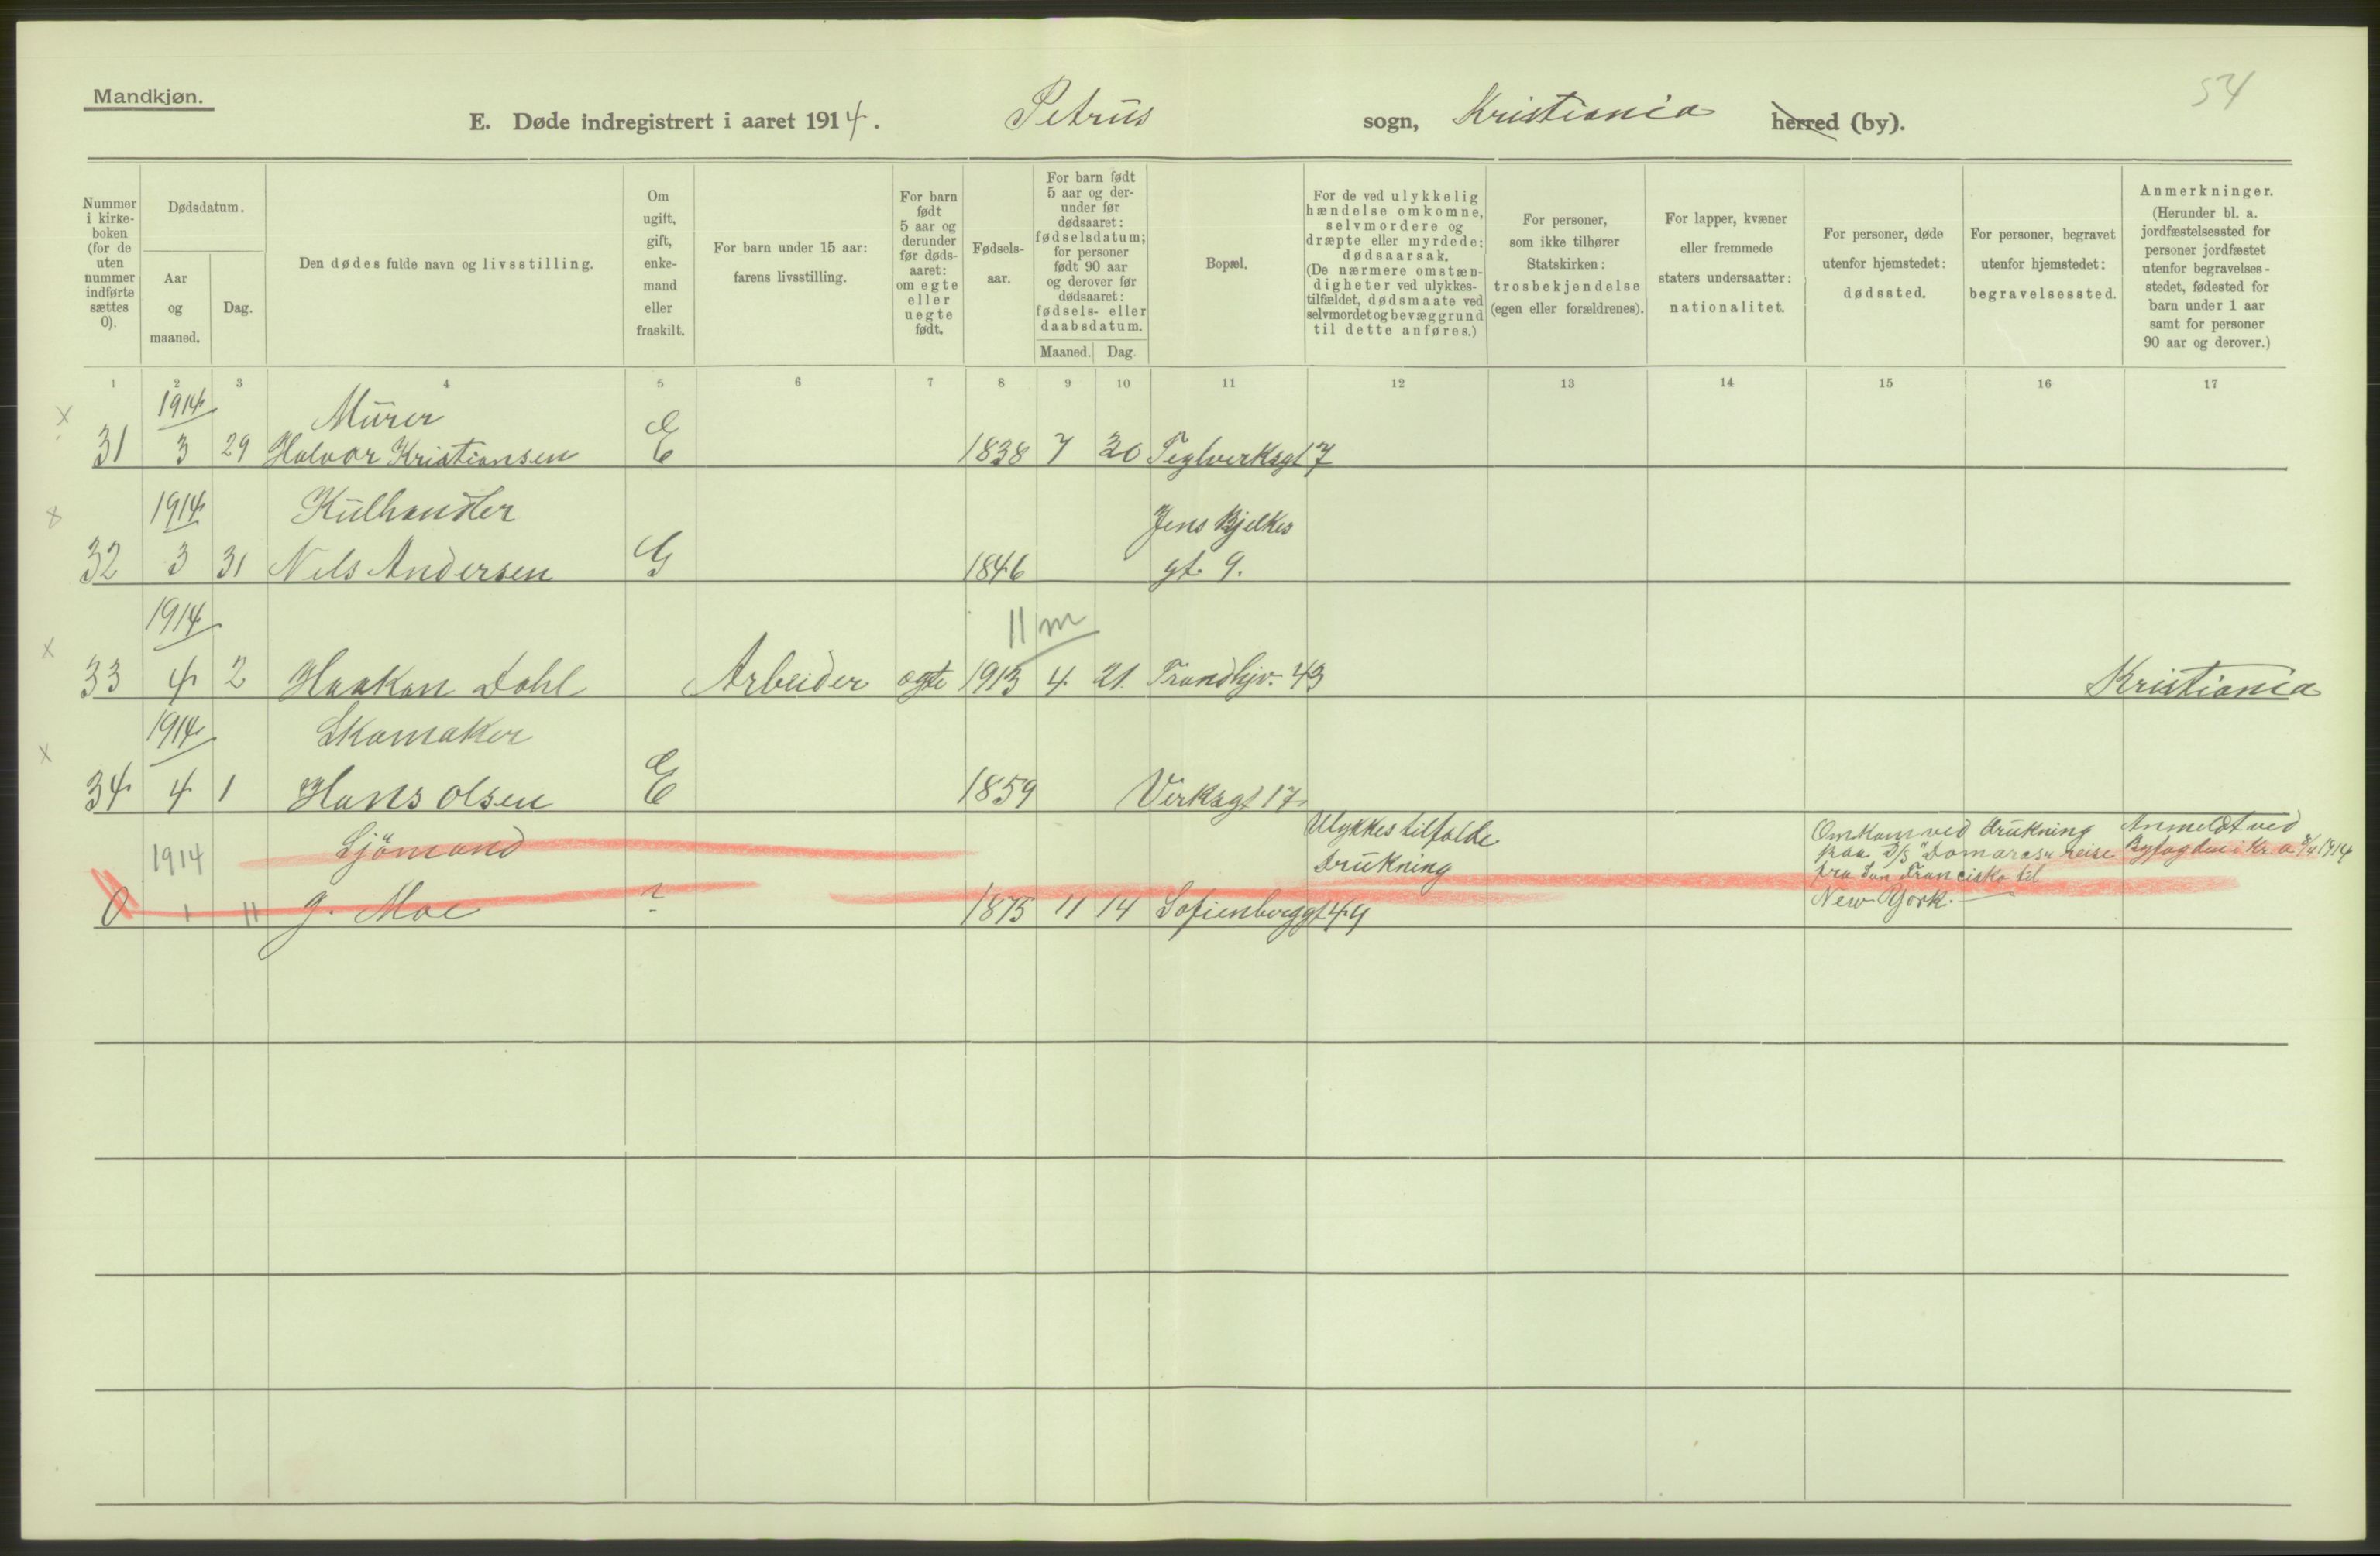 Mandkjøn.
54
E. Døde indregistrert i aaret 1914. Petrus sogn, Kristiania herred (by).
Nummer
i kirke-
boken
(for de
uten
nummer
indførte
sættes
0).
Dødsdatum.
Aar
og
maaned.
Dag.
Den dødes fulde navn og livsstilling.
Om
ugift,
gift,
enke-
mand
eller
fraskilt.
For barn under 15 aar:
farens livsstilling.
For barn
født
5 aar og
derunder
før døds-
aaret:
om egte
eller
uegte
født.
Fødsels-
aar.
For barn født
5 aar og der-
under før
dødsaaret:
fødselsdatum;
for personer
født 90 aar
og derover før
dødsaaret:
fødsels- eller
daabsdatum.
Maaned. Dag.
Bopæl.
For de ved ulykkelig
hændelse omkomne,
selvmordere og
dræpte eller myrdede:
dødsaarsak.
(De nærmere omstæn-
digheter ved ulykkes-
tilfældet, dødsmaate ved
selvmordet og bevæggrund
til dette anføres.)
For personer,
som ikke tilhører
Statskirken:
trosbekjendelse
(egen eller forældrenes).
For lapper, kvæner
eller fremmede
staters undersaatter:
nationalitet.
For personer, døde
utenfor hjemstedet:
dødssted.
For personer, begravet
utenfor hjemstedet:
begravelsessted.
Anmerkninger.
(Herunder bl. a.
jordfæstelsessted for
personer jordfæstet
utenfor begravelses-
stedet, fødested for
barn under 1 aar
samt for personer
90 aar og derover.)
1 2 3 4 5 6 7 8 9 10 11 12 13 14 15 16 17
x 1914 Mürer
31 3 29 Halvor Kristiansen E 1838 7 20 Teglverksgt 7
x 1914 Külhandler Jens Bjelkes
32 3 31 Nils Andersen G 1846 gt. 9.
1914 11 m
x 33 4 2 Haakon Dahl Arbeider egte 1913 4 21. Trondhjv. 43 Kristiania
1914 Skomaker
x 34 4 1 Hans Olsen E 1859 Verksgt 17
1914 Sjömand Ulykkestilfælde
Drükning
0 1 11 G. Moe ? 1875 11 14 Sofienberggt 44
Omkom ved drükning
paa D/S "Domares" reise
fra San Francisko til
New York.
Anmeldt ved
Byfogden i Kr.a 8/4 1914